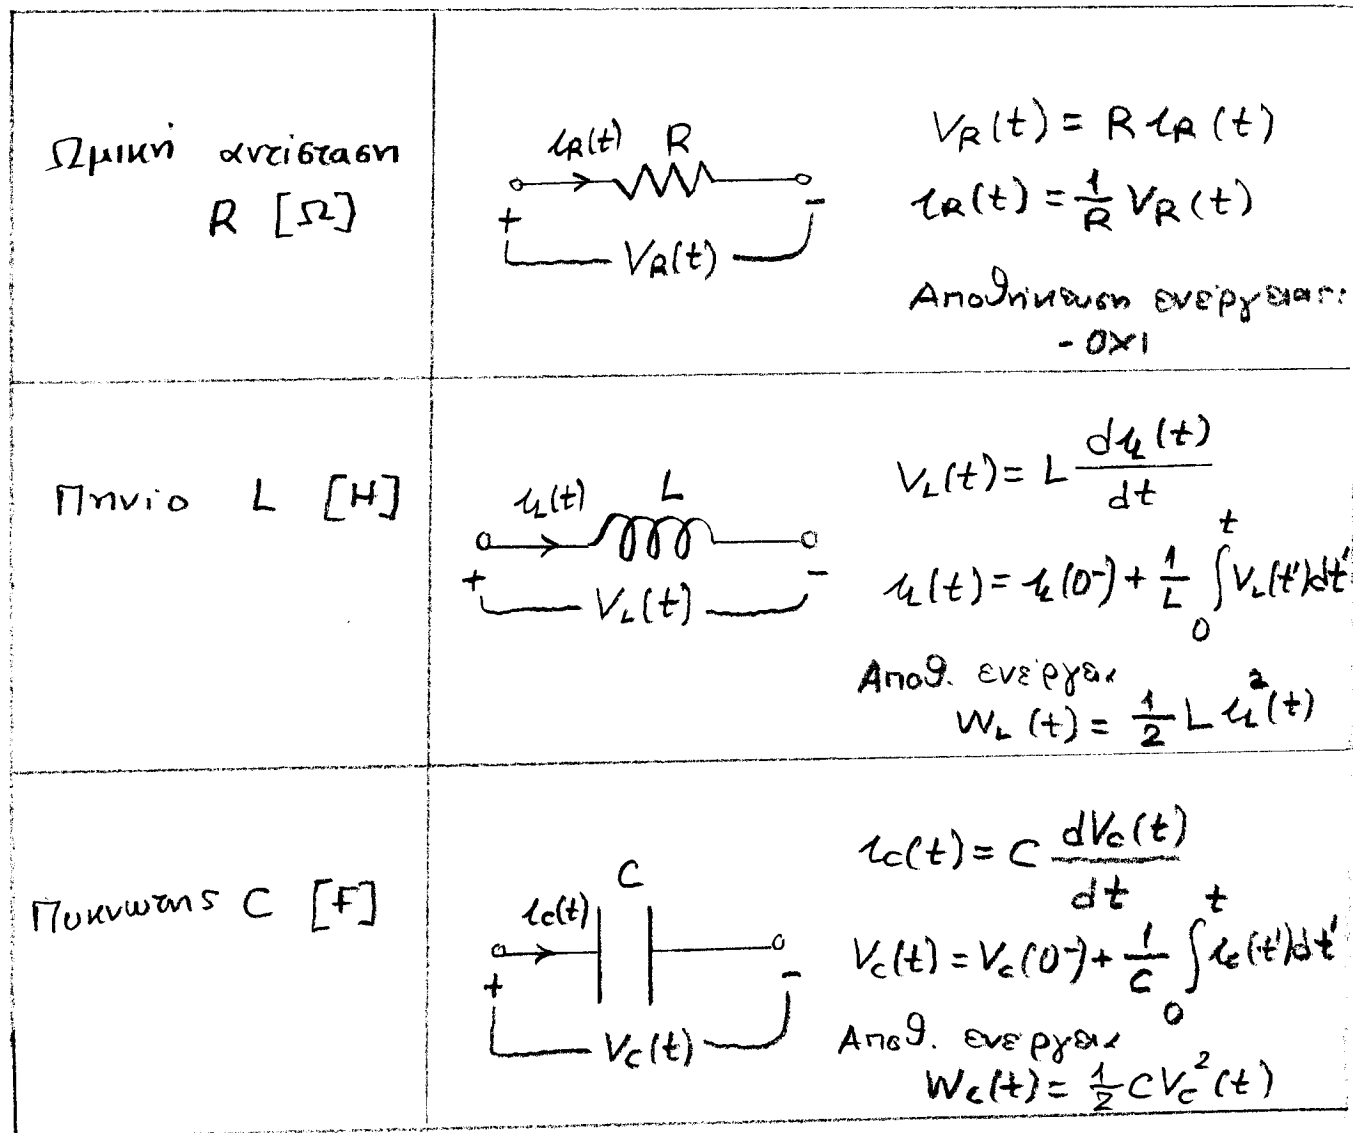 Ωμική αντίσταση
R [Ω]
i_R(t) R
+ −
V_R(t)
V_R(t) = R i_R(t)
i_R(t) = 1/R V_R(t)
Αποθήκευση ενέργειας:
- ΟΧΙ
Πηνίο L [H]
i_L(t) L
+ −
V_L(t)
V_L(t) = L di_L(t)/dt
i_L(t) = i_L(0⁻) + 1/L ∫₀ᵗ V_L(t')dt'
Αποθ. ενέργεια
W_L(t) = 1/2 L i_L²(t)
Πυκνωτής C [F]
C
i_C(t)
+ −
V_C(t)
i_C(t) = C dV_C(t)/dt
V_C(t) = V_C(0⁻) + 1/C ∫₀ᵗ i_C(t')dt'
Αποθ. ενέργεια
W_C(t) = 1/2 C V_C²(t)